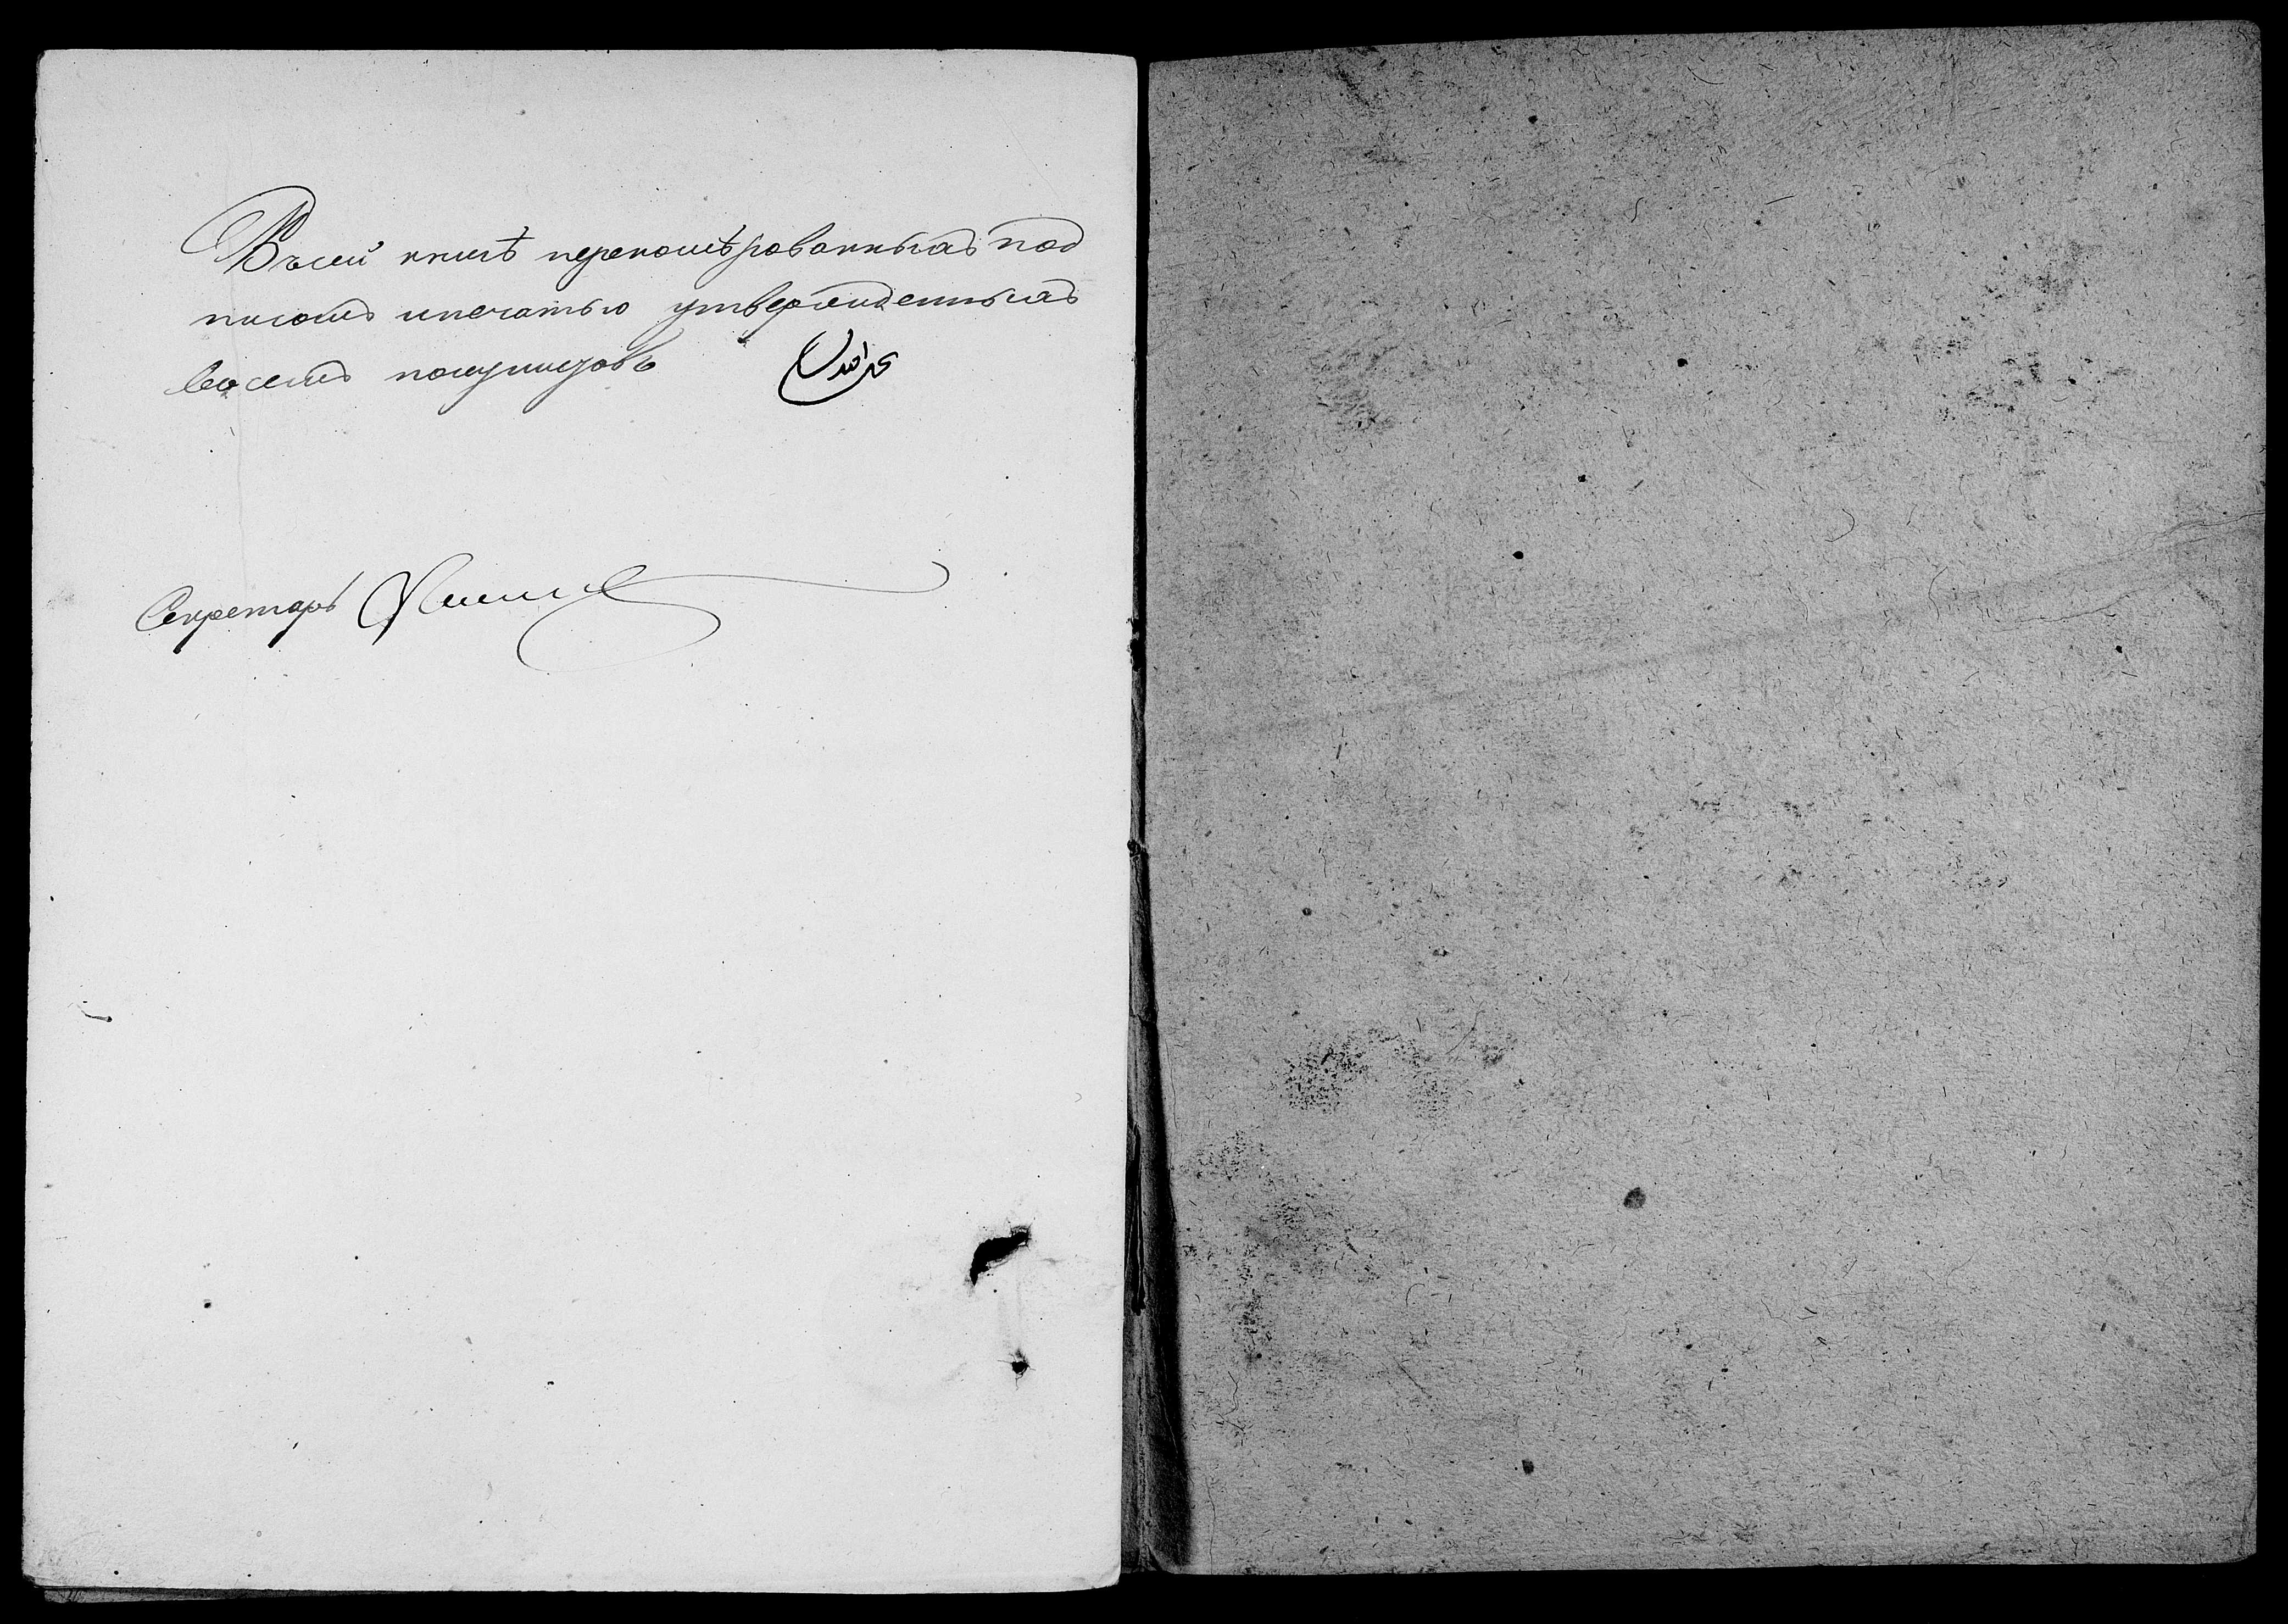 Въ сей книгѣ переномѣрованныхъ под
писомъ и печатью утвержденныхъ
восемь полулистовъ
Секретарь